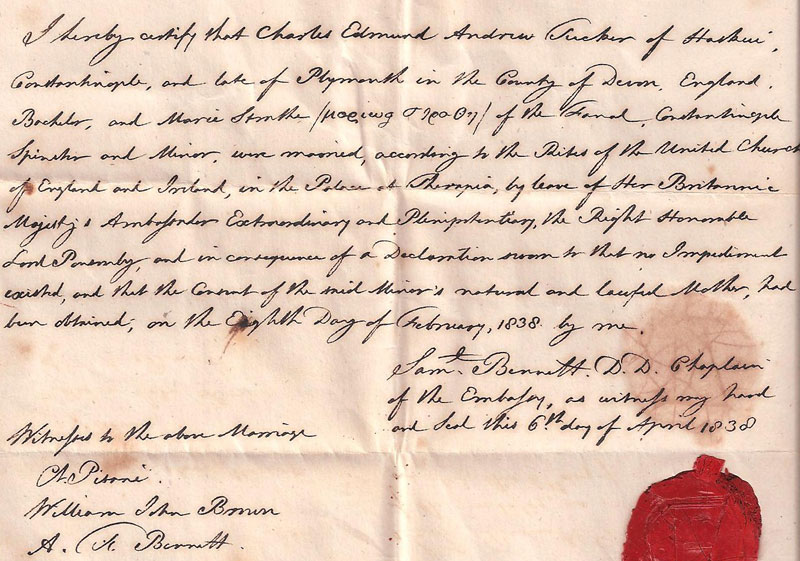 I hereby certify that Charles Edmund Andrew Tucker of Haskui,
Constantinople, and late of Plymouth in the County of Devon, England,
Bachelor, and Marie Strathe /μαριωρ στραθη/ of the Fanal, Constantinople
Spinster and Minor, were married, according to the Rites of the United Church
of England and Ireland, in the Palace at Therapia, by leave of Her Britannic
Majesty's Ambassador Extraordinary and Plenipotentiary, the Right Honorable
Lord Ponsonby, and in consequence of a Declaration sworn to that no Impediment
existed, and that the Consent of the said Minor's natural and lawful Mother, had
been obtained; on the Eighth Day of February, 1838 by me.
Saml. Bennett. D.D. Chaplain
of the Embassy, as witness my hand
and Seal this 6th day of April 1838
Witnesses to the above Marriage
Pisani.
William John Brown
A. Bennett.